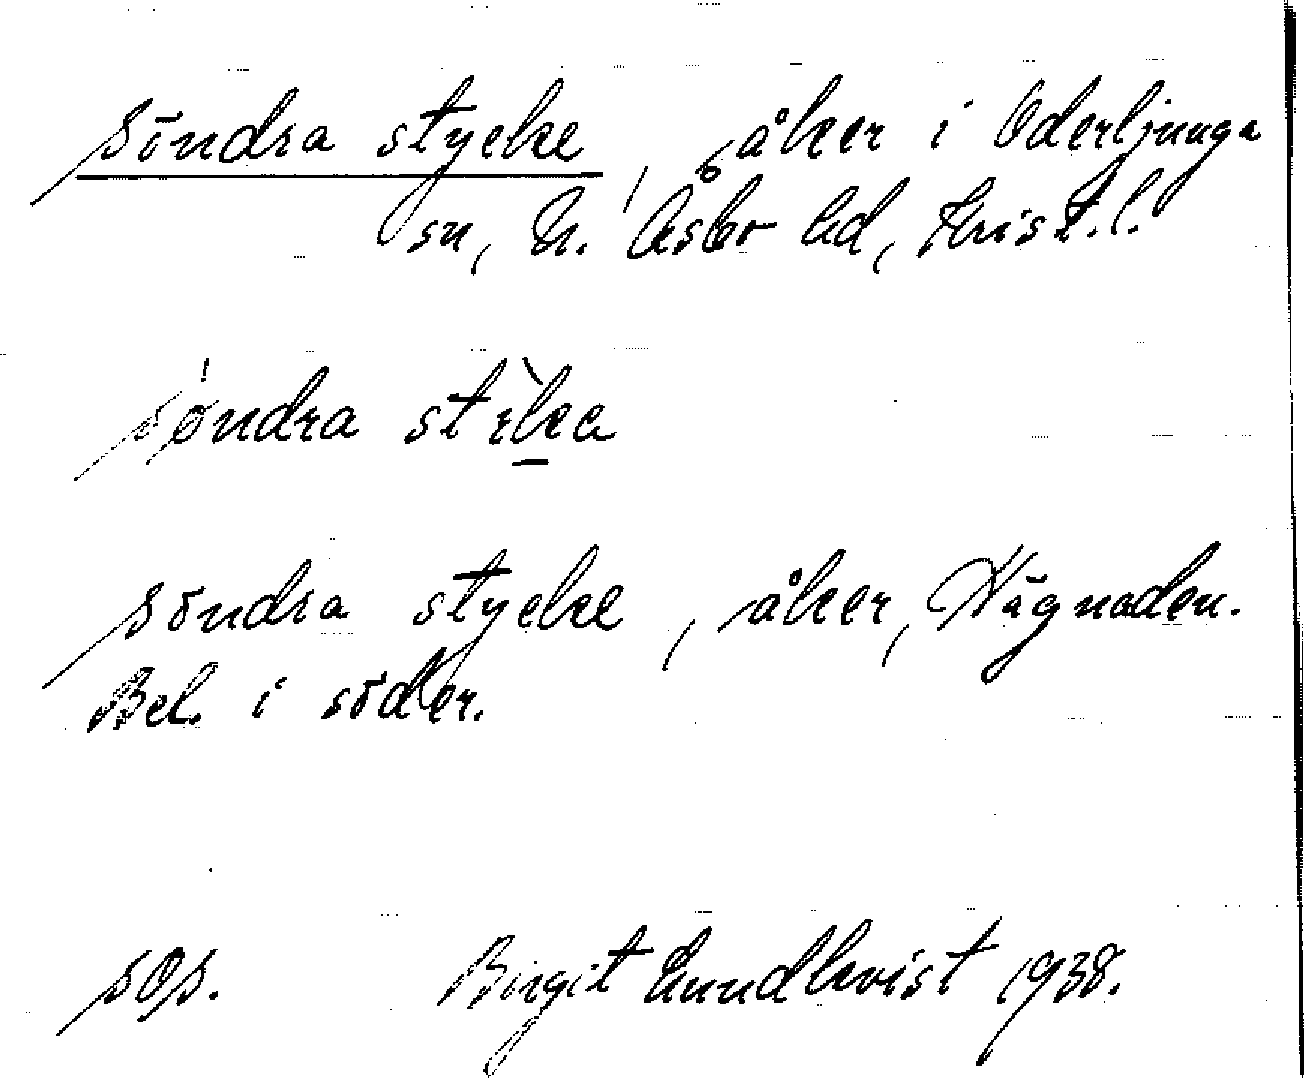 söndra stycke, åker i Oderljunga
sn, N. Åsbo hd, Krist. l.
söndra stikka
söndra stycke, åker, Vägnaden.
Bel. i söder.
sgs. Birgit Lundkvist 1938.